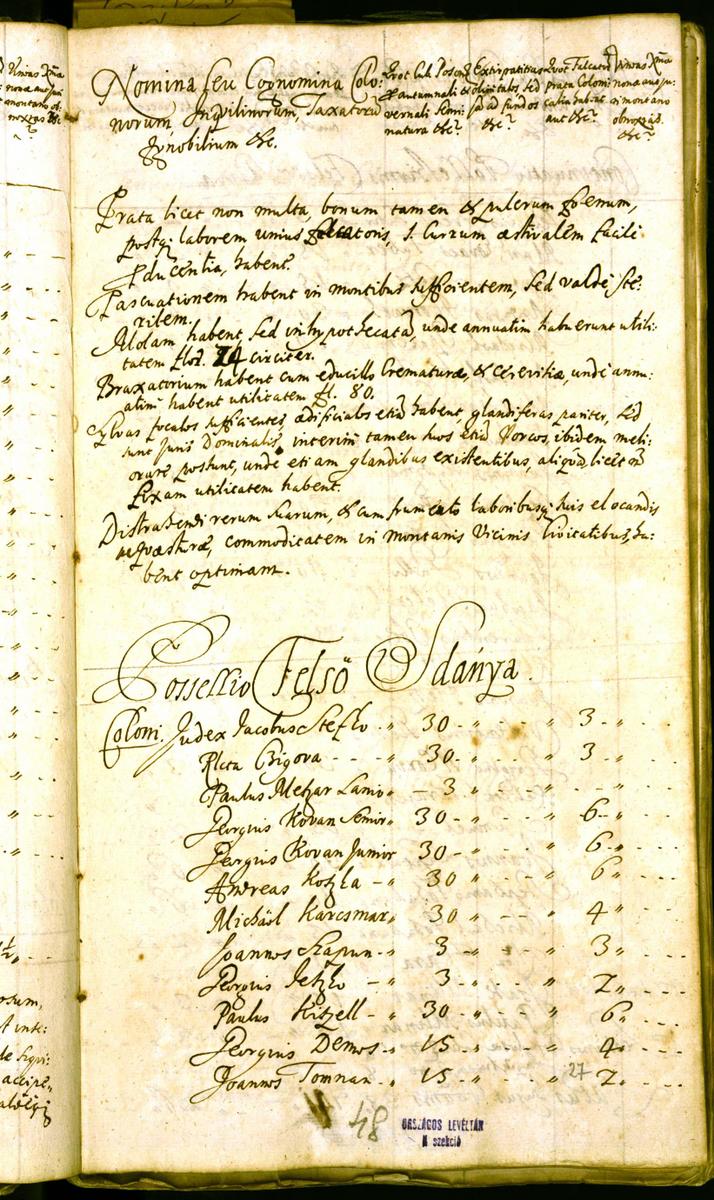 Nomina seu Cognomina Colo:
norum, Inqvilinorum, Taxatorū
Ignobilium &c.
Quot Cub. Poson.
& autumnali &
vernali Semi:
natura &c?
Extirpatitias
olditalos, sed
ad fundos
&c?
Quot Falcator
prata Coloni:
calia habent
aut &c?
Vineas Xma
nona aut ju:
ri montano
obnoxias
&c?
Prata licet non multa, bonum tamen & pulcrum foenum,
postqz laborem unius falcatoris, 1. Currum aestivalem facile
educentia, habent.
Pascuationem habent in montibus sufficientem, sed valdè ste:
rilem.
Molam habent, sed inhypothecatā, unde annuatim habuerunt utili:
tatem flor. 24 circiter.
Braxatorium habent cum educillo Crematurae, & cerevisiae, unde annu:
atim habent utilitatem fl. 80.
Sylvas focales sufficientes, aedificiales etiā habent, glandiferas pariter, sed
sunt Juris Dominalis, interim tamen suos etiā Porcos, ibidem meli:
orare possunt, unde etiam glandibus existentibus, aliqvā, licet nō
fixam utilitatem habent.
Distrahendi rerum suarum, & cum frumento laboribusqz suis elocandis
neqvaesturae, commoditatem in montanis Vicinis Civitatibus, ha:
bent optimam.
Possessio Felsö Sdánya.
Coloni. Judex Jacobus Steflo - „ 30 - „ - - „ 3 - „ - - -
Rlcta Czigova - - - „ 30 - „ - - „ 3 - „ - - -
Paulus Metzar Lanio „ - 3 - „ - - „ - „ - - -
Georgius Kovan Senior „ 30 - „ - - „ 6 - „ - - -
Georgius Kovan Junior 30 - „ - - „ 6 - „ - - -
Andreas Kotzka - „ 30 „ - - „ 6 „ - - -
Michäel Karcsmar „ 30 „ - - „ 4 „ - - -
Joannes Czapun - „ 3 „ - - „ 3 „ - - -
Georgius Jetzko - „ 3 „ - - „ 2 „ - - -
Paulus Kitzell - „ 30 „ - - „ 6 „ - - -
Georgius Demos - „ 15 „ - - „ 4 „ - - -
Joannes Tomnan - „ 15 „ - - „ 2 „ - - -
27
48
ORSZÁGOS LEVÉLTÁR
N szekció